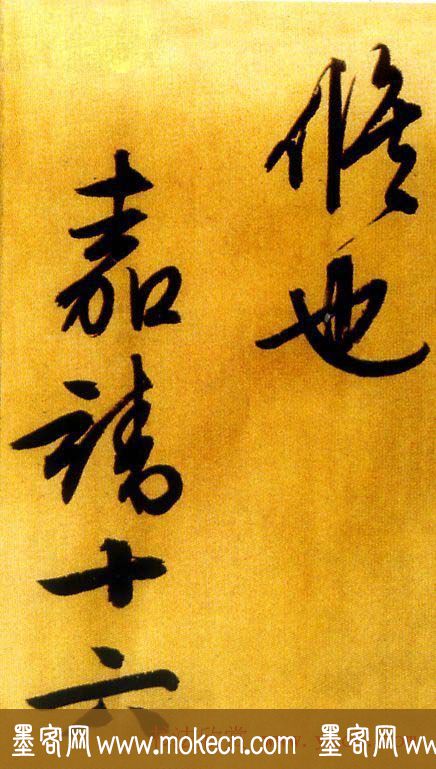 也
嘉靖十六
墨客网www.mokecn.com 墨客网www